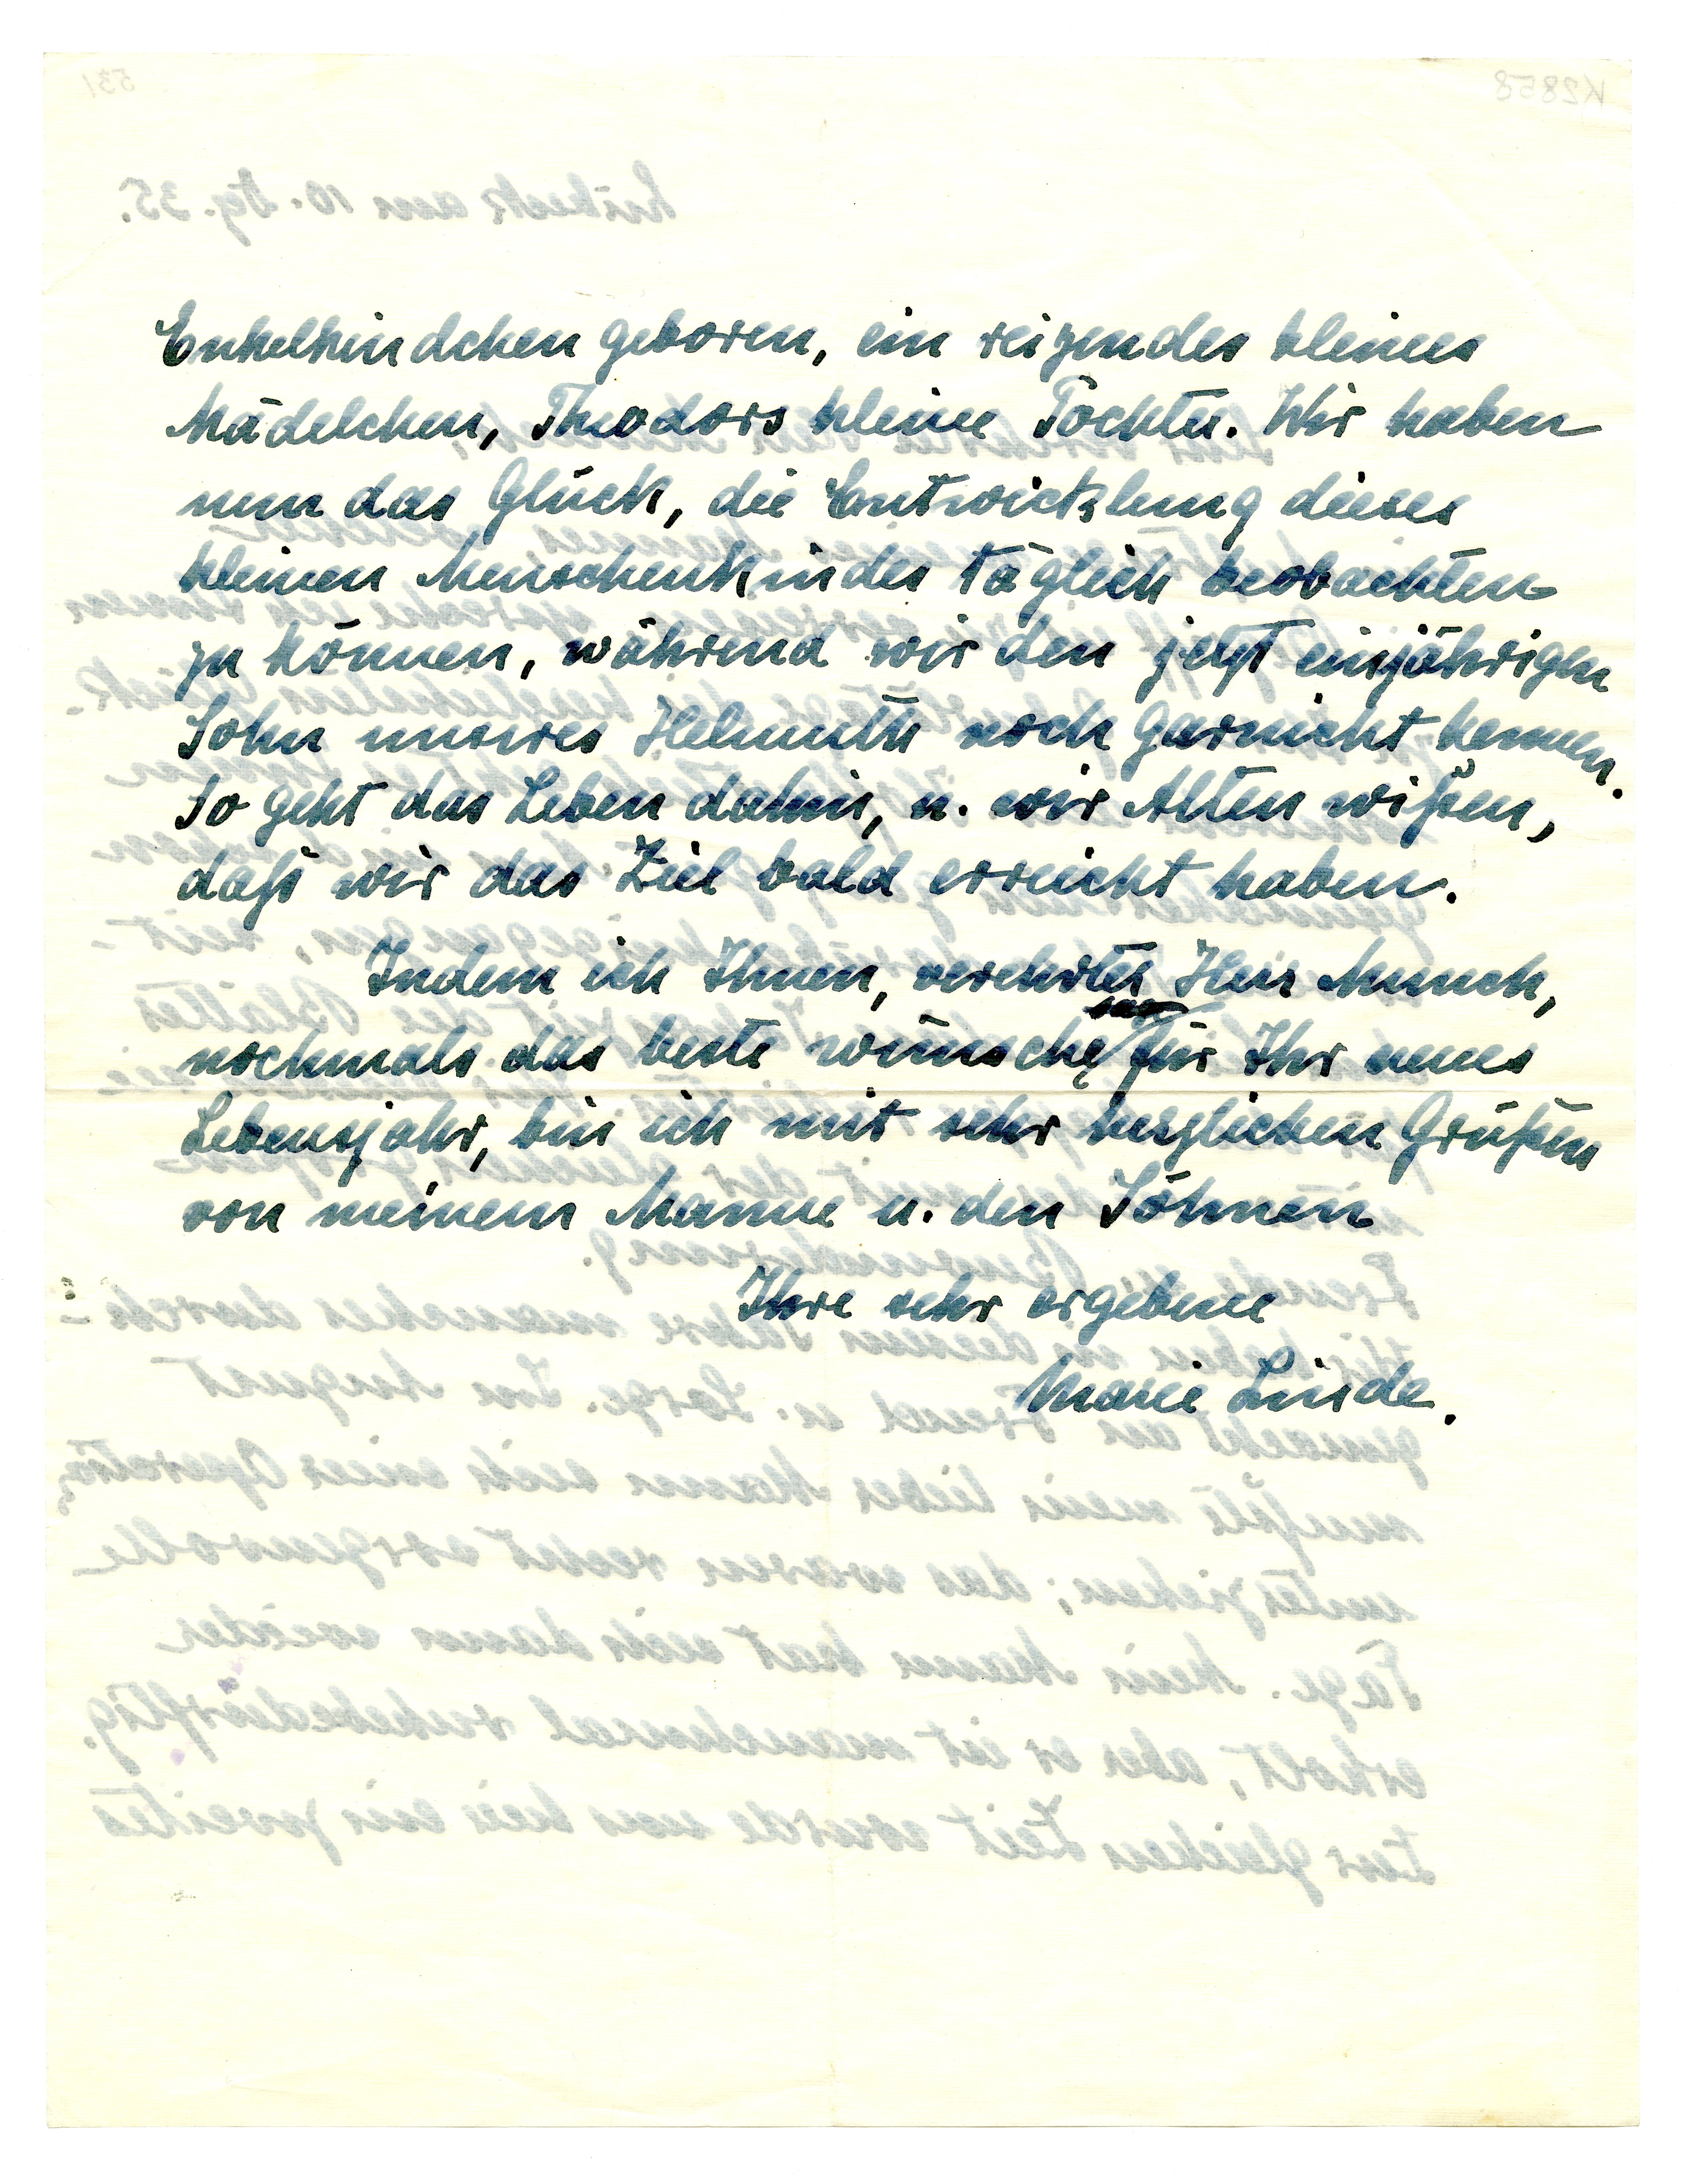 Enkelkindchen geboren, ein reizendes kleines
Mädelchen, Theodors kleine Tochter. Wir haben
nun das Glück, die Entwicklung dieses
kleinen Menschenkindes täglich beobachten
zu können, während wir den jetzt einjährigen
Sohn unsres Helmuth noch garnicht kennen.
So geht das Leben dahin, u. wir Alten wißen,
daß wir das Ziel bald erreicht haben.
Indem ich Ihnen, verehrter Herr Munch,
nochmals das beste wünsche für Ihr neues
Lebensjahr, bin ich mit sehr herzlichen Grüßen
von meinem Manne u. den Söhnen
Ihre sehr ergebene
Marie Linde.